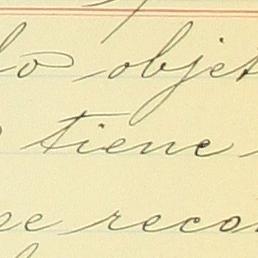 lo objet
tiene
se recon